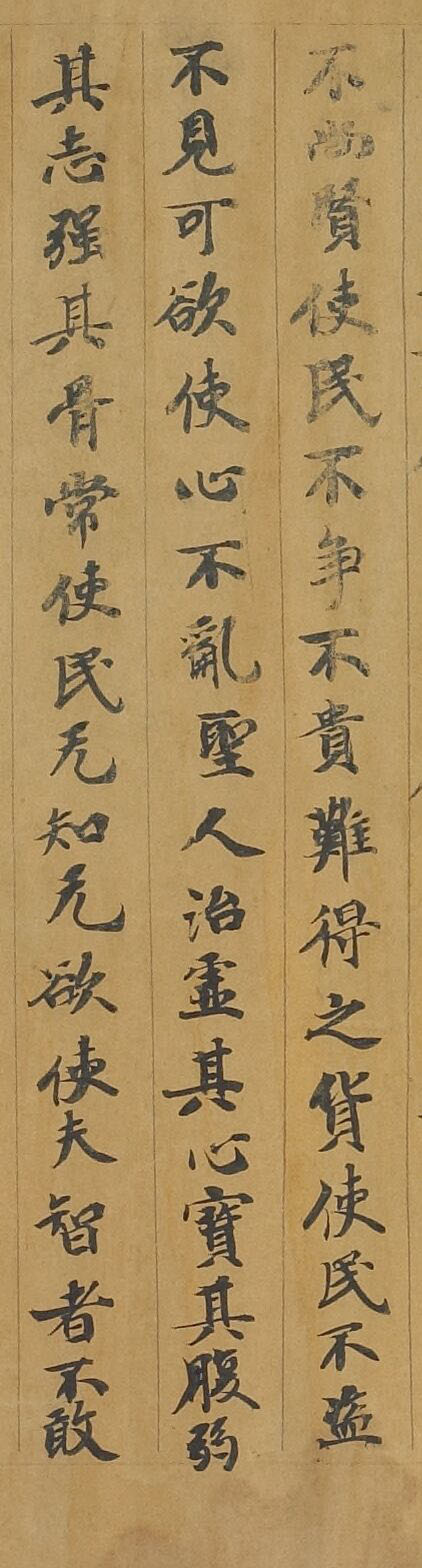 不尚賢使民不争不貴難得之貨使民不盗
不見可欲使心不亂聖人治虛其心寶其腹弱
其志强其骨常使民无知无欲使夫智者不敢